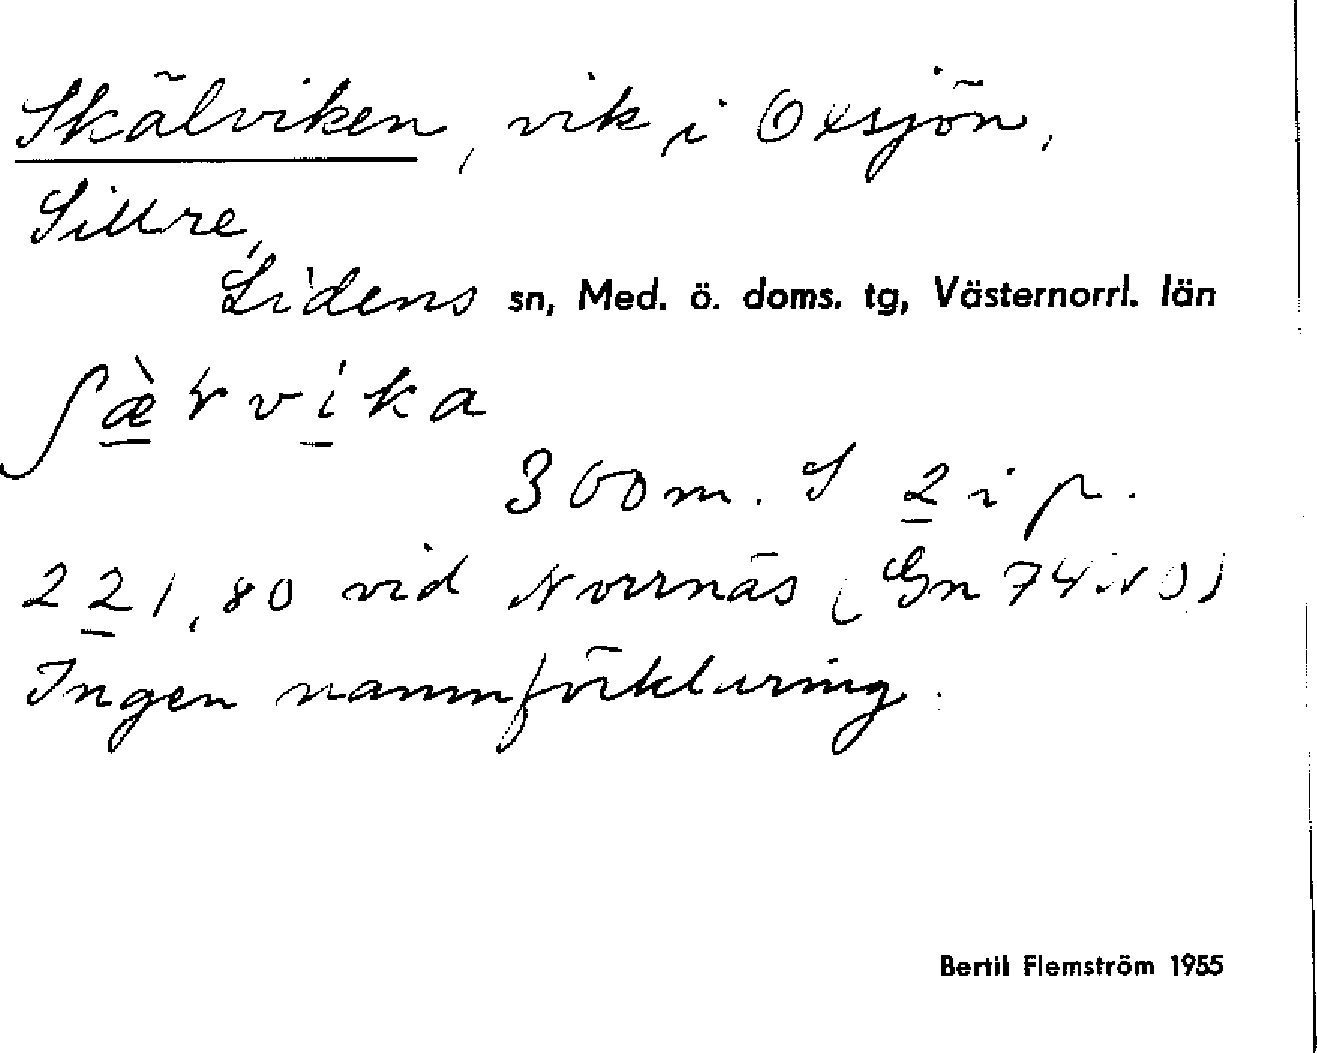 Skälviken, vik i Oxsjön,
Sillre,
Lidens sn, Med. ö. doms. tg, Västernorrl. län
ʃæ̀rvika
300 m. S 2 i p.
221,80 vid Norrnäs (Gn 74
Ingen namnförklaring.
Bertil Flemström 1955